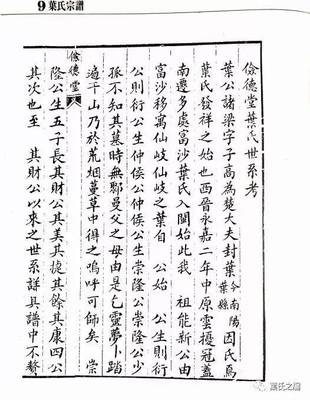 9葉氏宗譜
儉德堂葉氏世系考
葉公諸梁字子高為楚大夫封葉今南陽葉縣因氏焉
葉氏發祥之始也西晉永嘉二年中原雲擾冠蓋
南遷多處富沙葉氏入閩始此我 祖能新公由
富沙移寓仙岐仙岐之葉自 公始 公生則衍
公則衍公生仲侯公仲侯公生崇隆公崇隆公少
孤不知其墓時無鄹曼父之母由是乞靈夢卜踏
遍千山乃於荒烟蔓草中得之嗚呼可師矣 崇
隆公生五子長其財公其美其捷其餘其康四公
其次也至 其財公以來之世系詳具譜中不贅
儉德堂
葉氏之窗